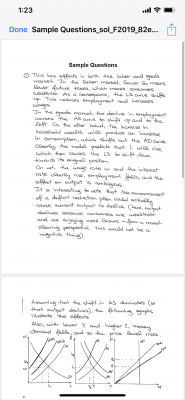 1:23
Done Sample Questions_sol_F2019_82e...
Sample Questions
① This has effects in both the labor and goods
market. In the labor market, lower G means
lower future taxes, which makes consumers
wealthier. As a consequence, the LS curve shifts
up. This reduces employment and increases
wages.
In the goods market, the decline in employment
causes the AS curve to shift up and to the
left. On the other hand, the increase in
household wealth will produce an increase
in consumption, which shifts out the AD curve.
Clearly the model predicts that r will rise,
which then causes the LS to shift down
towards its original position.
On net, the wage rate w and the interest
rate clearly rise, employment falls, and the
effect on output is ambiguous.
It is interesting to note that the announcement
of a deficit reduction plan could actually
cause current output to decline (here, output
declines because consumers are wealthier
and are enjoying more leisure - from a market
clearing perspective this would not be a
negative thing).
Assuming that the shift in AS dominates (so
that output declines), the following graphs
illustrate the effects.
Also, with lower Y and higher r, money
demand falls, and so the price level rises